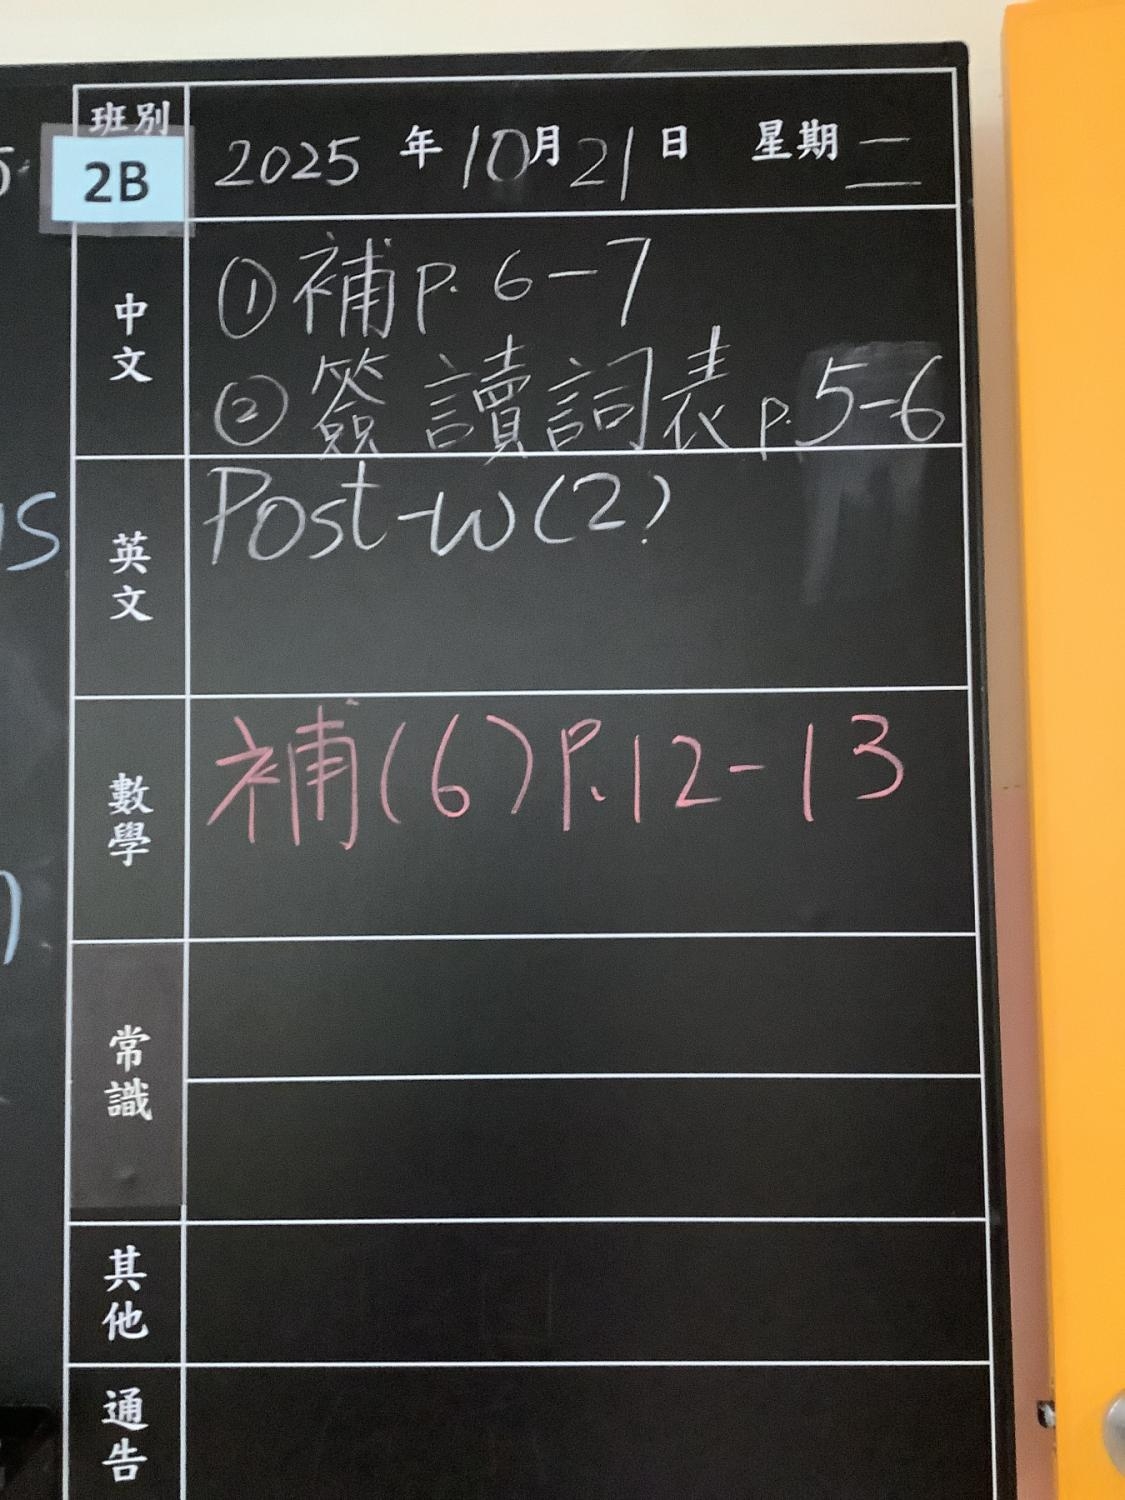 班別
2B
2025 年 10 月 21 日 星期二
中文
① 補 p. 6-7
② 簽讀詞表 p. 5-6
英文
Post-w (2)
數學
補(6) P. 12-13
常識
其他
通告